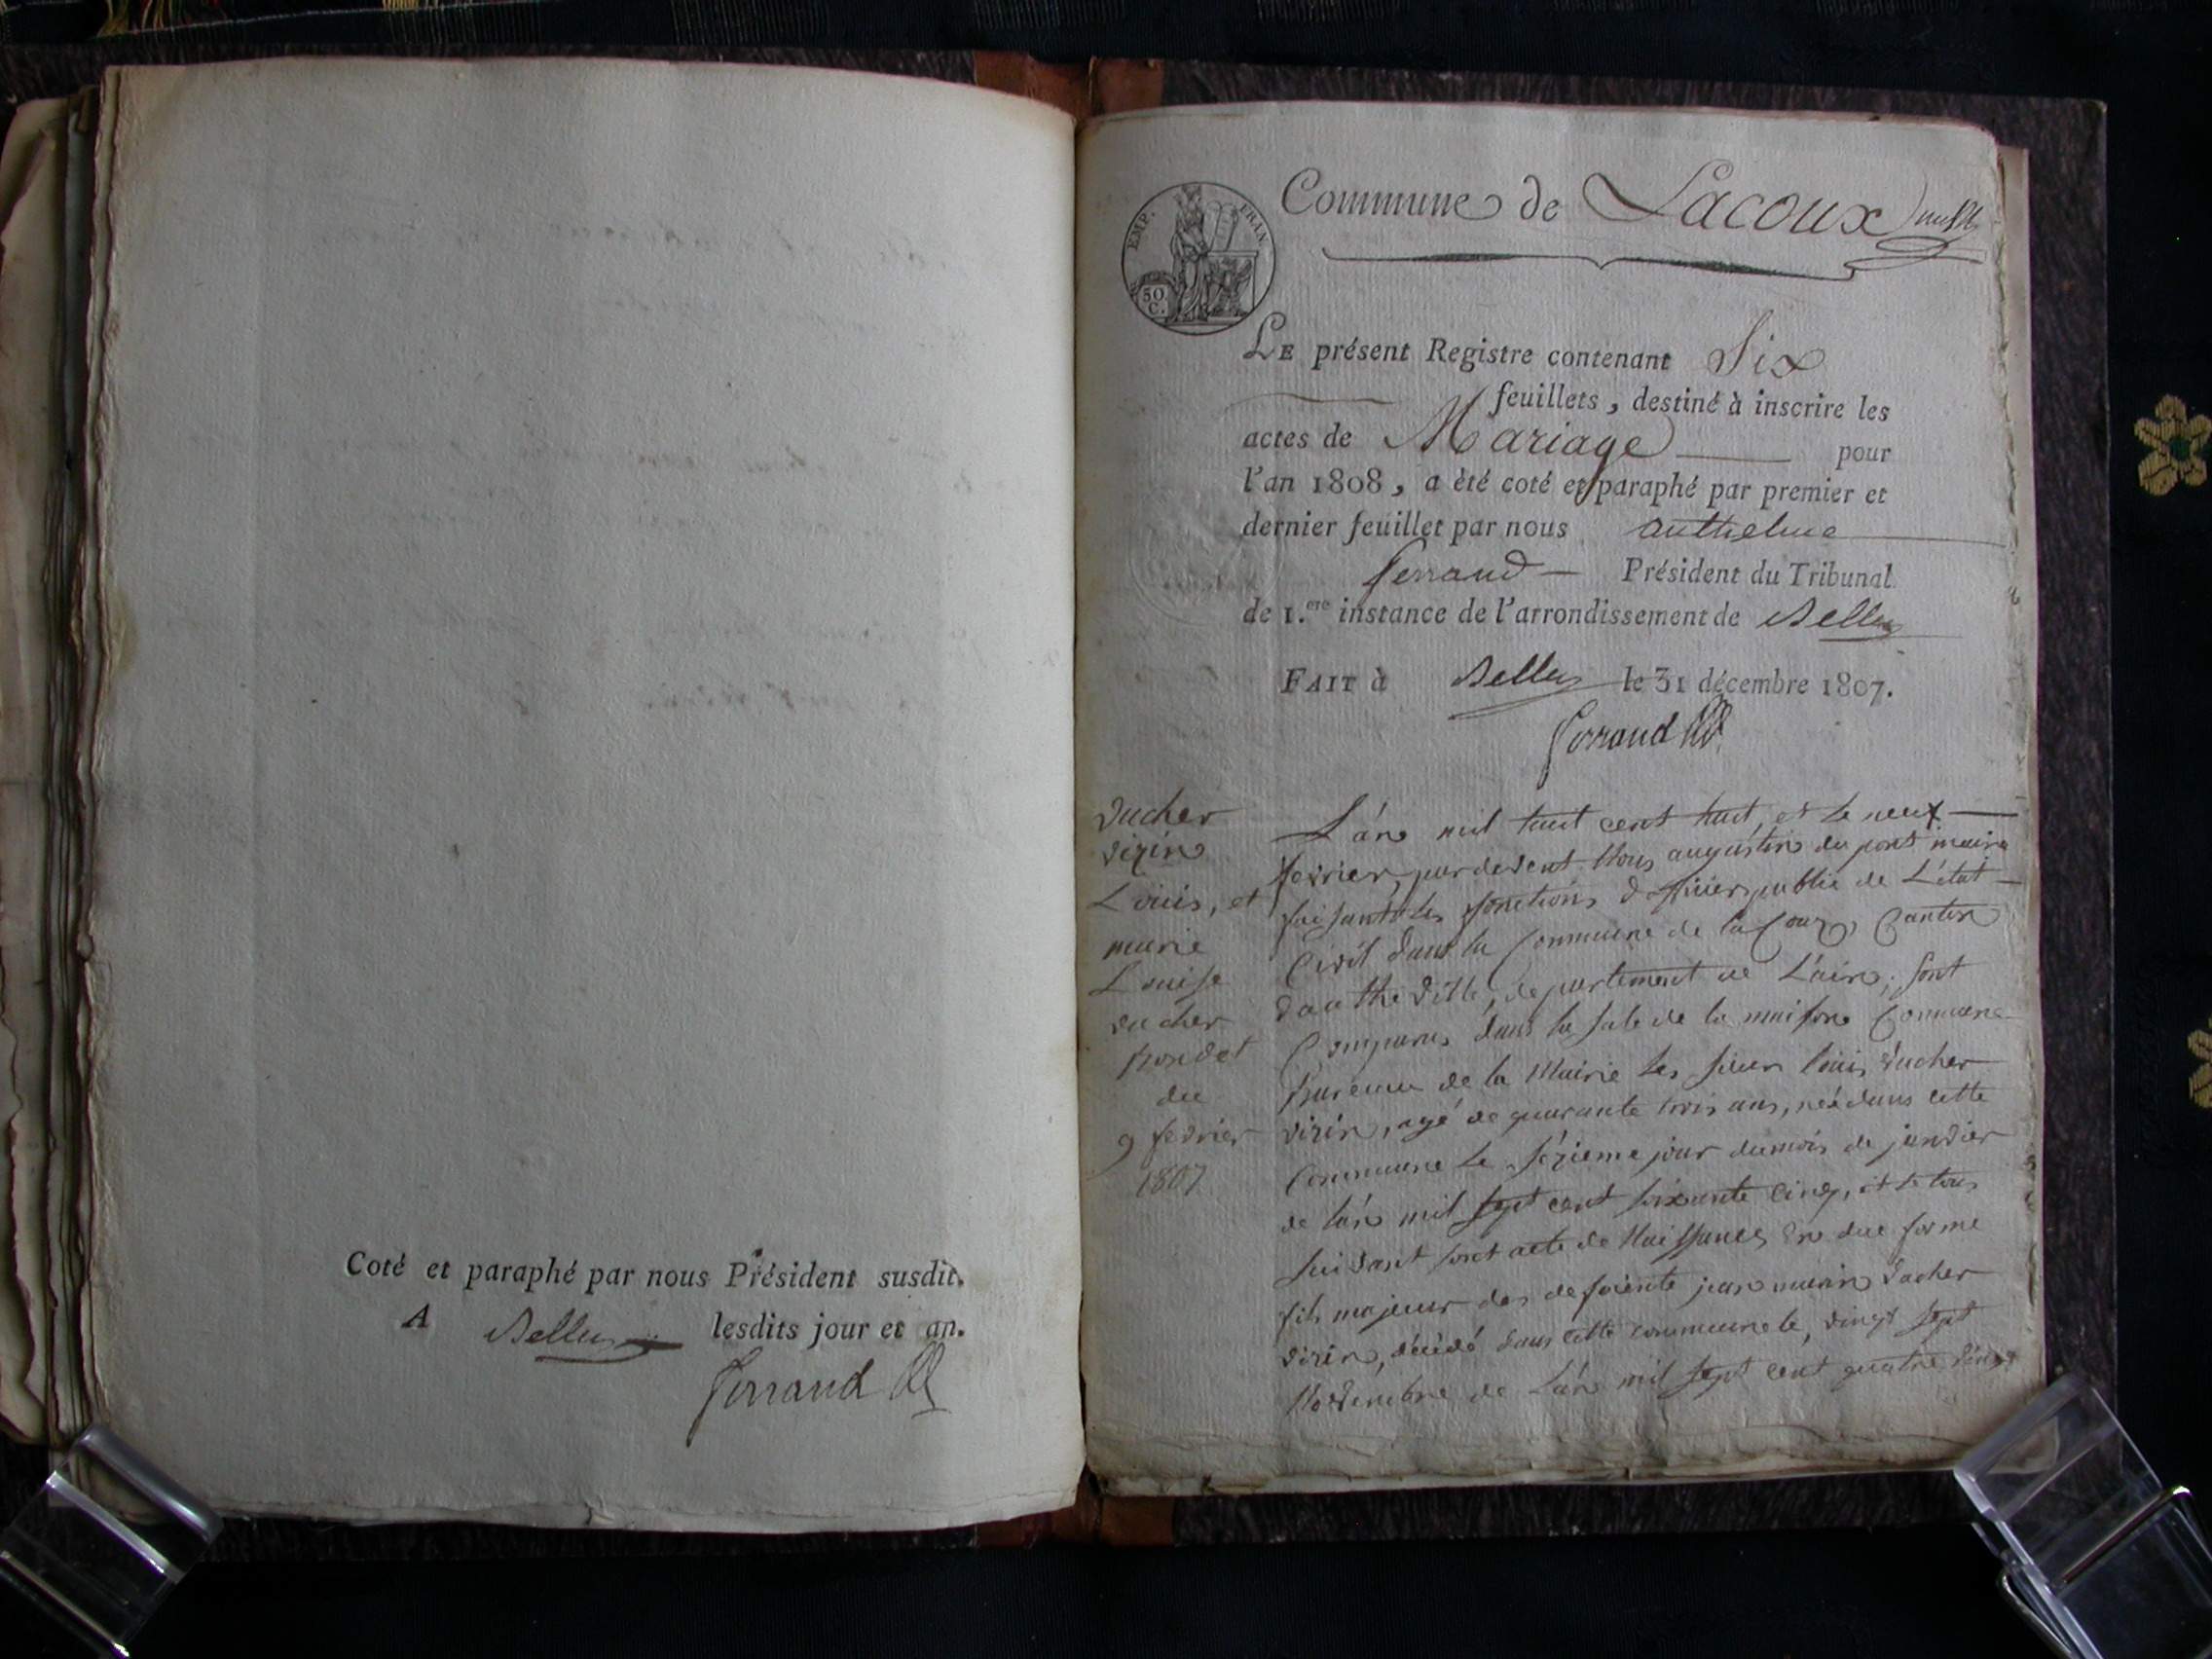 Coté et paraphé par nous Président susdit.
A Belley lesdits jour et an.
Ferrand
EMP. FRAN.
50 C.
Commune de Lacoux
LE présent Registre contenant Six
feuillets, destiné à inscrire les
actes de Mariage pour
l'an 1808, a été coté et paraphé par premier et
dernier feuillet par nous anthelme
ferrand Président du Tribunal
de 1.ere instance de l'arrondissement de Belley
FAIT à Belley le 31 décembre 1807.
Ferrand
Vucher
Vizin
Louis, et
marie
Louise
vucher
pondet
du
9 fevrier
1807
L'an mil huit cent huit, et le neuf
fevrier, pardevent Nous augustin du pont maire
faisant les fonctions d'officier public de L'état
Civil dans la Commune de la Coux, Canton
d'authe Ville, departement de L'ain, sont
Comparus dans la sale de la maison Commune
Bureau de la Mairie les sieur louis Vucher
Vizin, agé de quarante trois ans, née dans cette
Commune le sézieme jour du mois de janvier
de l'an mil sept cent soixante cinq, et le tous
suivant sont acte de Naissance en due forme
fils majeur des defuients jean marin Vucher
Vizin, décédé dans cette commune le, vingt sept
Novembre de L'an mil sept cent quatre vingt